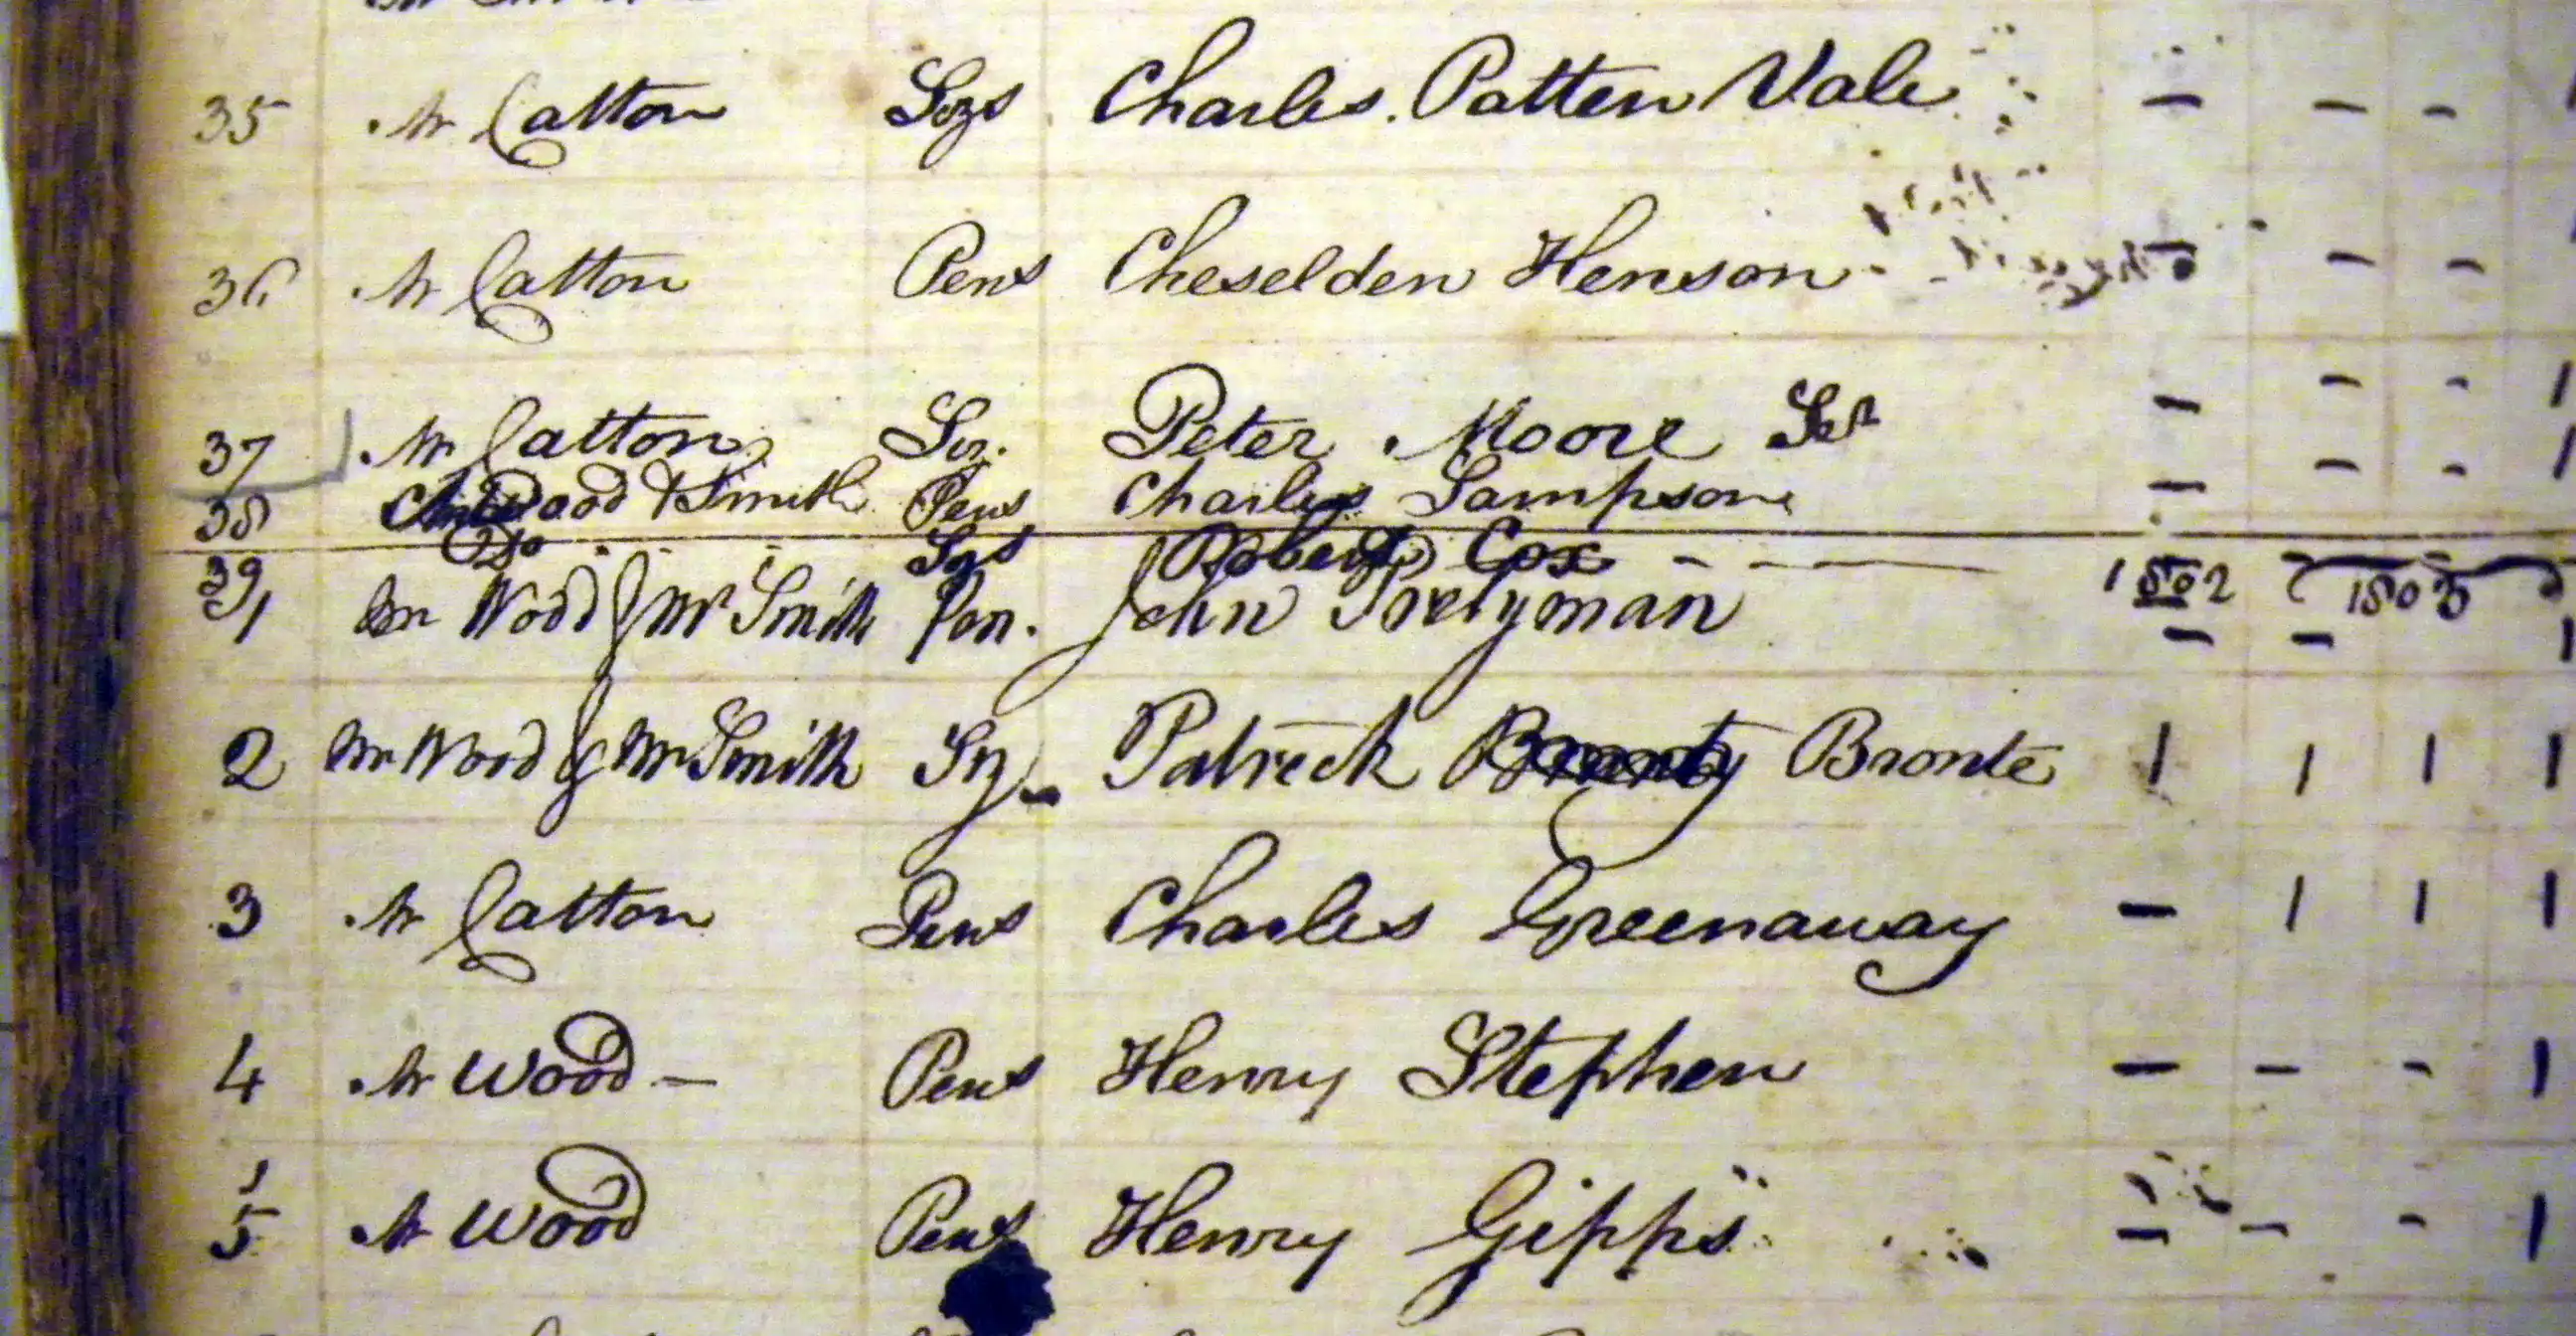 35 Mr Catton Sizr Charles Patten Vale - - -
36 Mr Catton Pens Cheselden Henson - - -
37 Mr Catton Siz. Peter Moore - - - 1
38 Wood & Smith Pens Charles Sampson - - - 1
39 Do Sizr Robert Cox - - 1802 1803
1 Mr Wood & Mr Smith Pen. John Pretyman - - 1
2 Mr Wood & Mr Smith Siz Patrick Branty Bronte 1 1 1 1
3 Mr Catton Pens Charles Greenaway - 1 1 1
4 Mr Wood - Pens Henry Stephen - - - 1
5 Mr Wood Pens Henry Gipps - - - 1